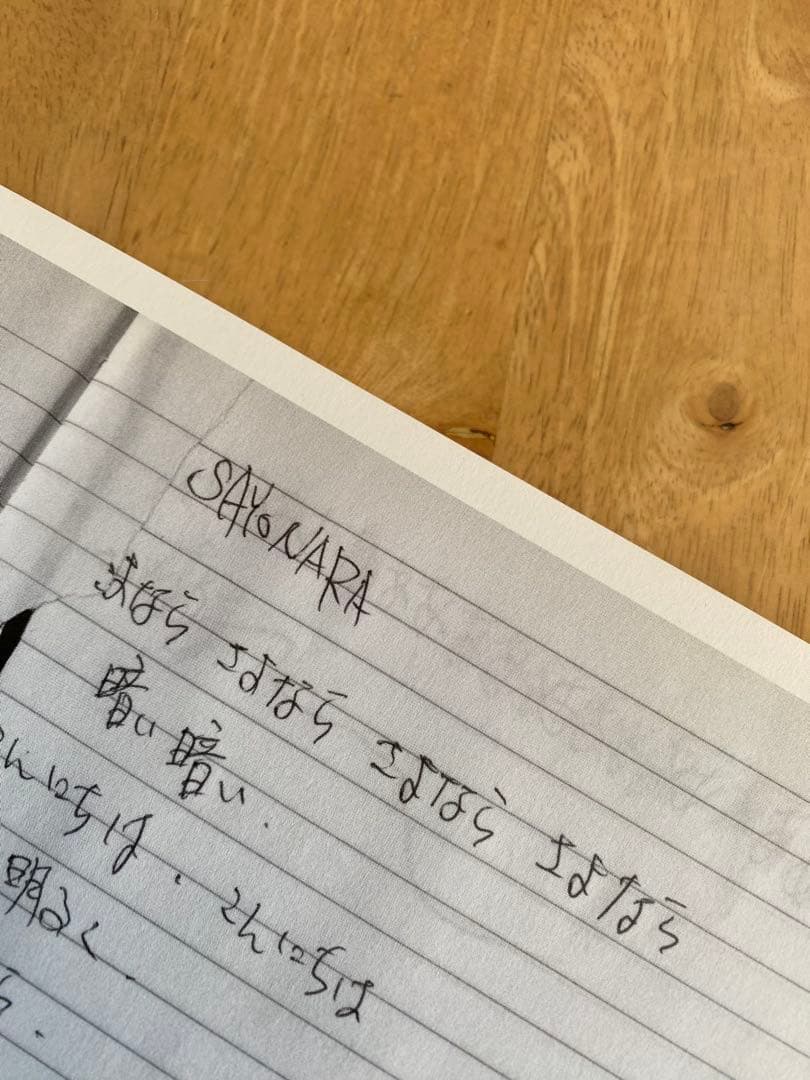 SAYONARA
さよなら さよなら さよなら さよなら
暗い 暗い.
こんにちは. こんにちは
明るく.
ら.